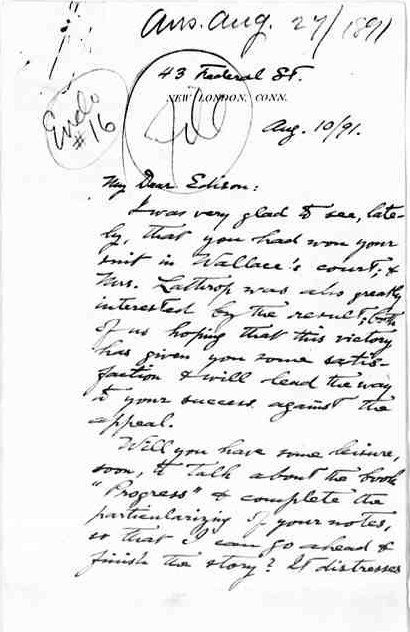 Ans. Aug. 27/1891
43 Federal St.
NEW LONDON, CONN.
Endo
#16
Aug. 10/91.
My Dear Edison:
I was very glad to see, late-
ly, that you had won your
suit in Wallace's court; &
Mrs. Lathrop was also greatly
interested by the result; both
of us hoping that this victory
has given you some satis-
faction & will lead the way
to your success against the
appeal.
Will you have some leisure,
soon, to talk about the book
"Progress" & complete the
particularizing of your notes,
so that I can go ahead &
finish the story? It distresses